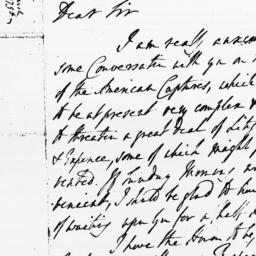 Dear Sir
I am really anxious
some Conversation with you on
of the American Captures, which
to be at present very complex &
to threaten a great Deal of Liti
& Expence, some of which might
vented. If Sunday Morning
venient, I should be glad to have
of waiting upon you for a half
I have the Honor to be